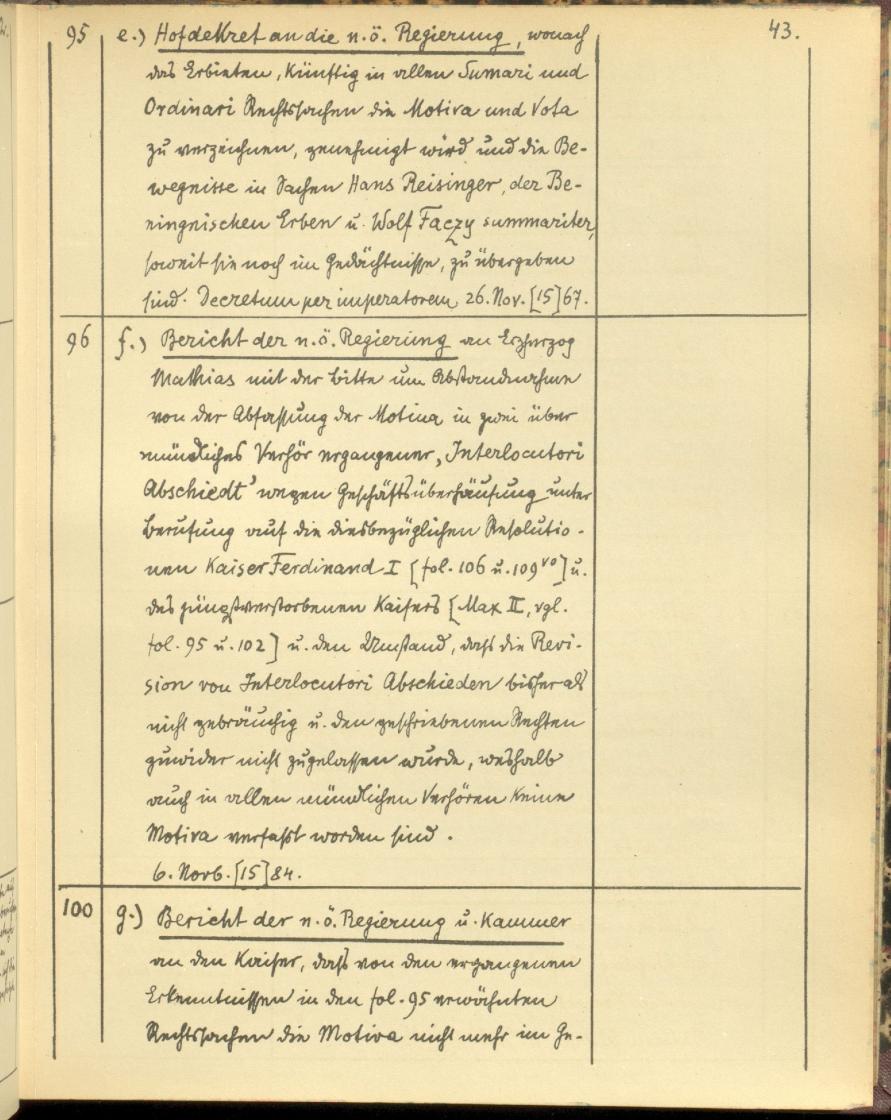 43.
95 e.) Hofdekret an die n.ö. Regierung, wonach
das Erbieten, künftig in allen Sumari und
Ordinari Rechtssachen die Motiva und Vota
zu verzeichnen, genehmigt wird und die Be-
wegnisse in Sachen Hans Reisinger, der Be-
ningnischen Erben u. Wolf Faczy summariter,
soweit sie noch im Gedächtnisse, zu übergeben
sind. Decretum per imperatorem 26. Nov. [15]67.
96 f.) Bericht der n.ö. Regierung an Erzherzog
Mathias mit der Bitte um Abstandnahme
von der Abfassung der Motiva in zwei über
mündliches Verhör ergangener „Interlocutori
Abschiedt" wegen Geschäftsüberhäufung unter
Berufung auf die diesbezüglichen Resolutio-
nen Kaiser Ferdinand I [fol. 106 u. 109vo] u.
des jüngstverstorbenen Kaisers [Max II, vgl.
fol. 95 u. 102] u. den Umstand, daß die Revi-
sion von Interlocutori Abschieden bisher als
nicht gebräuchig u. den geschriebenen Rechten
zuwider nicht zugelassen wurde, weshalb
auch in allen mündlichen Verhören keine
Motiva verfaßt worden sind.
6. Novb. [15]84.
100 g.) Bericht der n.ö. Regierung u. Kammer
an den Kaiser, daß von den ergangenen
Erkenntnissen in den fol. 95 erwähnten
Rechtssachen die Motiva nicht mehr im Ge-